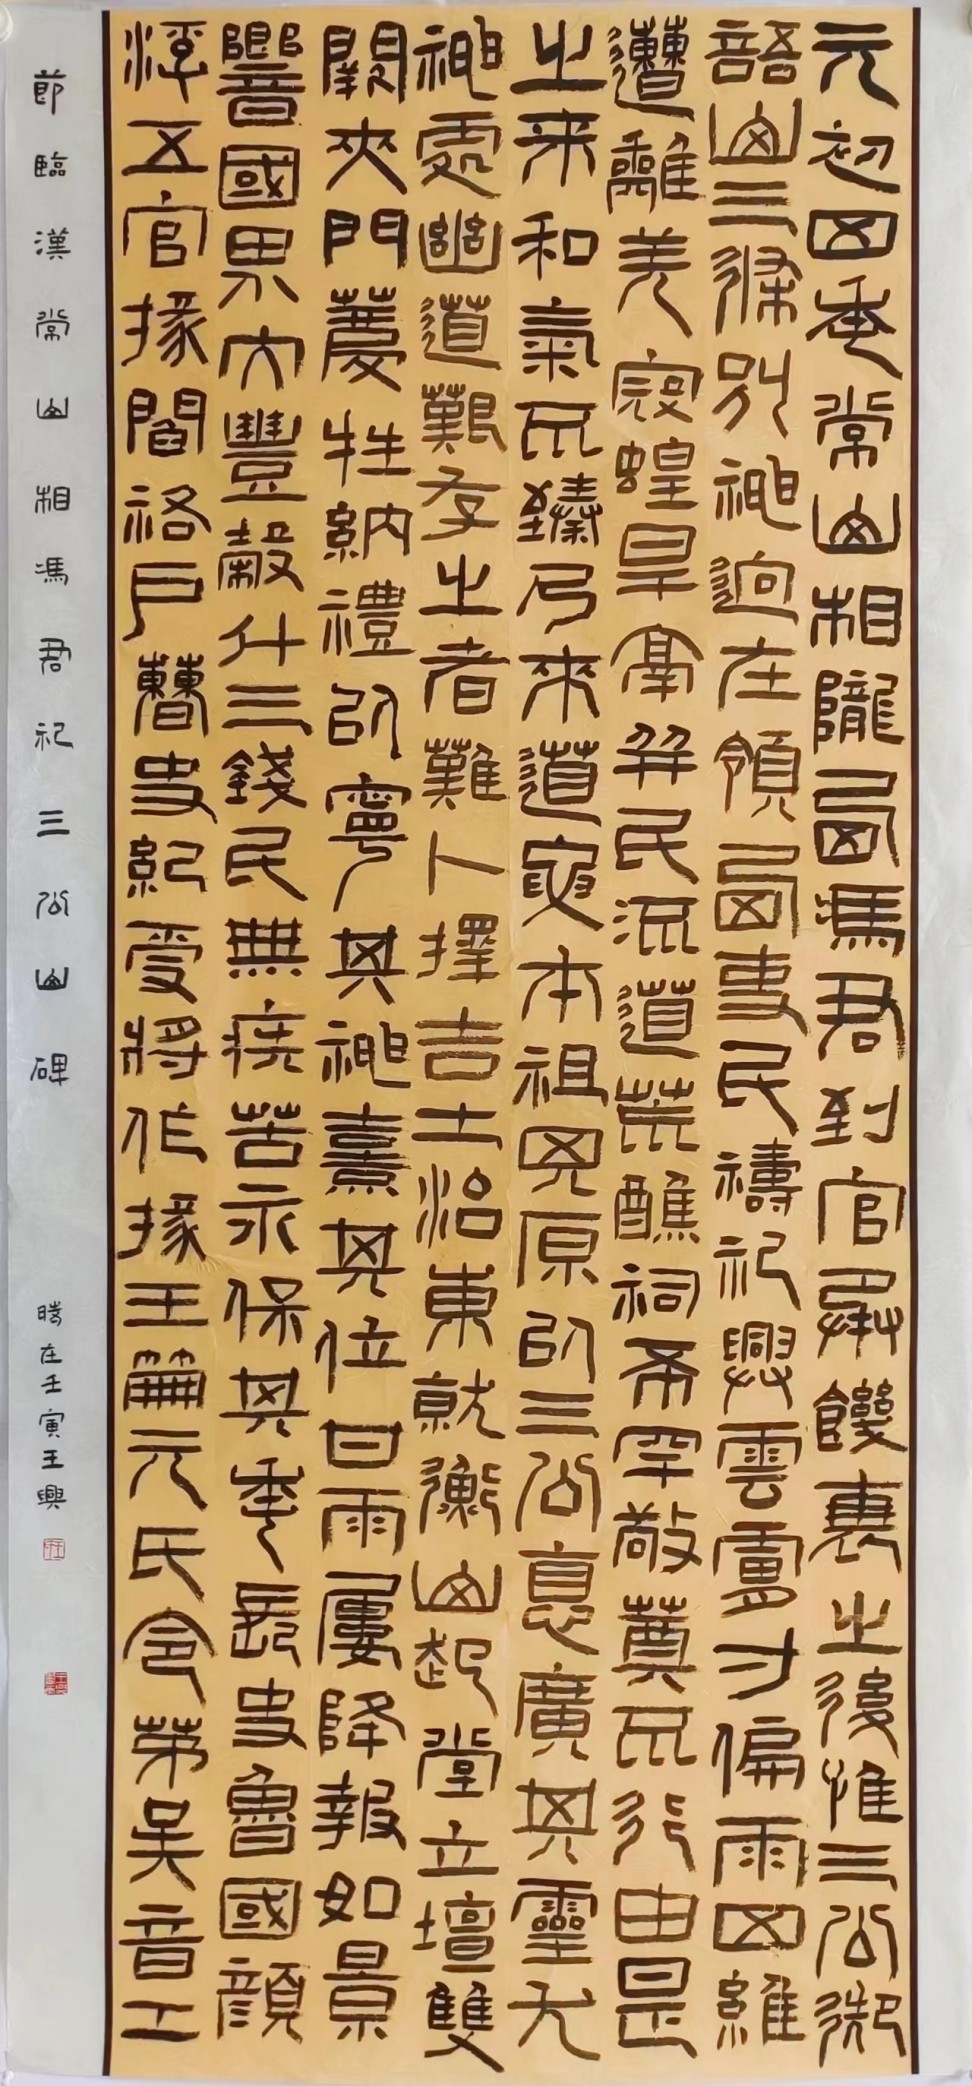 元初四年常山相隴西馮君到官承饑衰之後惟三公御
語山三條別神迥在領西吏民禱祀興雲膚寸偏雨四維
遭離羌寇蝗旱鬲并民流道荒醮祠希罕敬奠不行由是
之來和氣不臻乃來道要本祖其原以三公德廣其靈尤
神處幽道艱存之者難卜擇吉土治東就衡山起堂立壇雙
闕夾門薦牲納禮以寧其神熹其位甘雨屢降報如景
響國界大豐穀斗三錢民無疾苦永保其年長史魯國顏
浮五官掾閻祐戶曹史紀受將作掾王笧元氏令茅吳音工
節臨漢常山相馮君祀三公山碑
時在壬寅王興